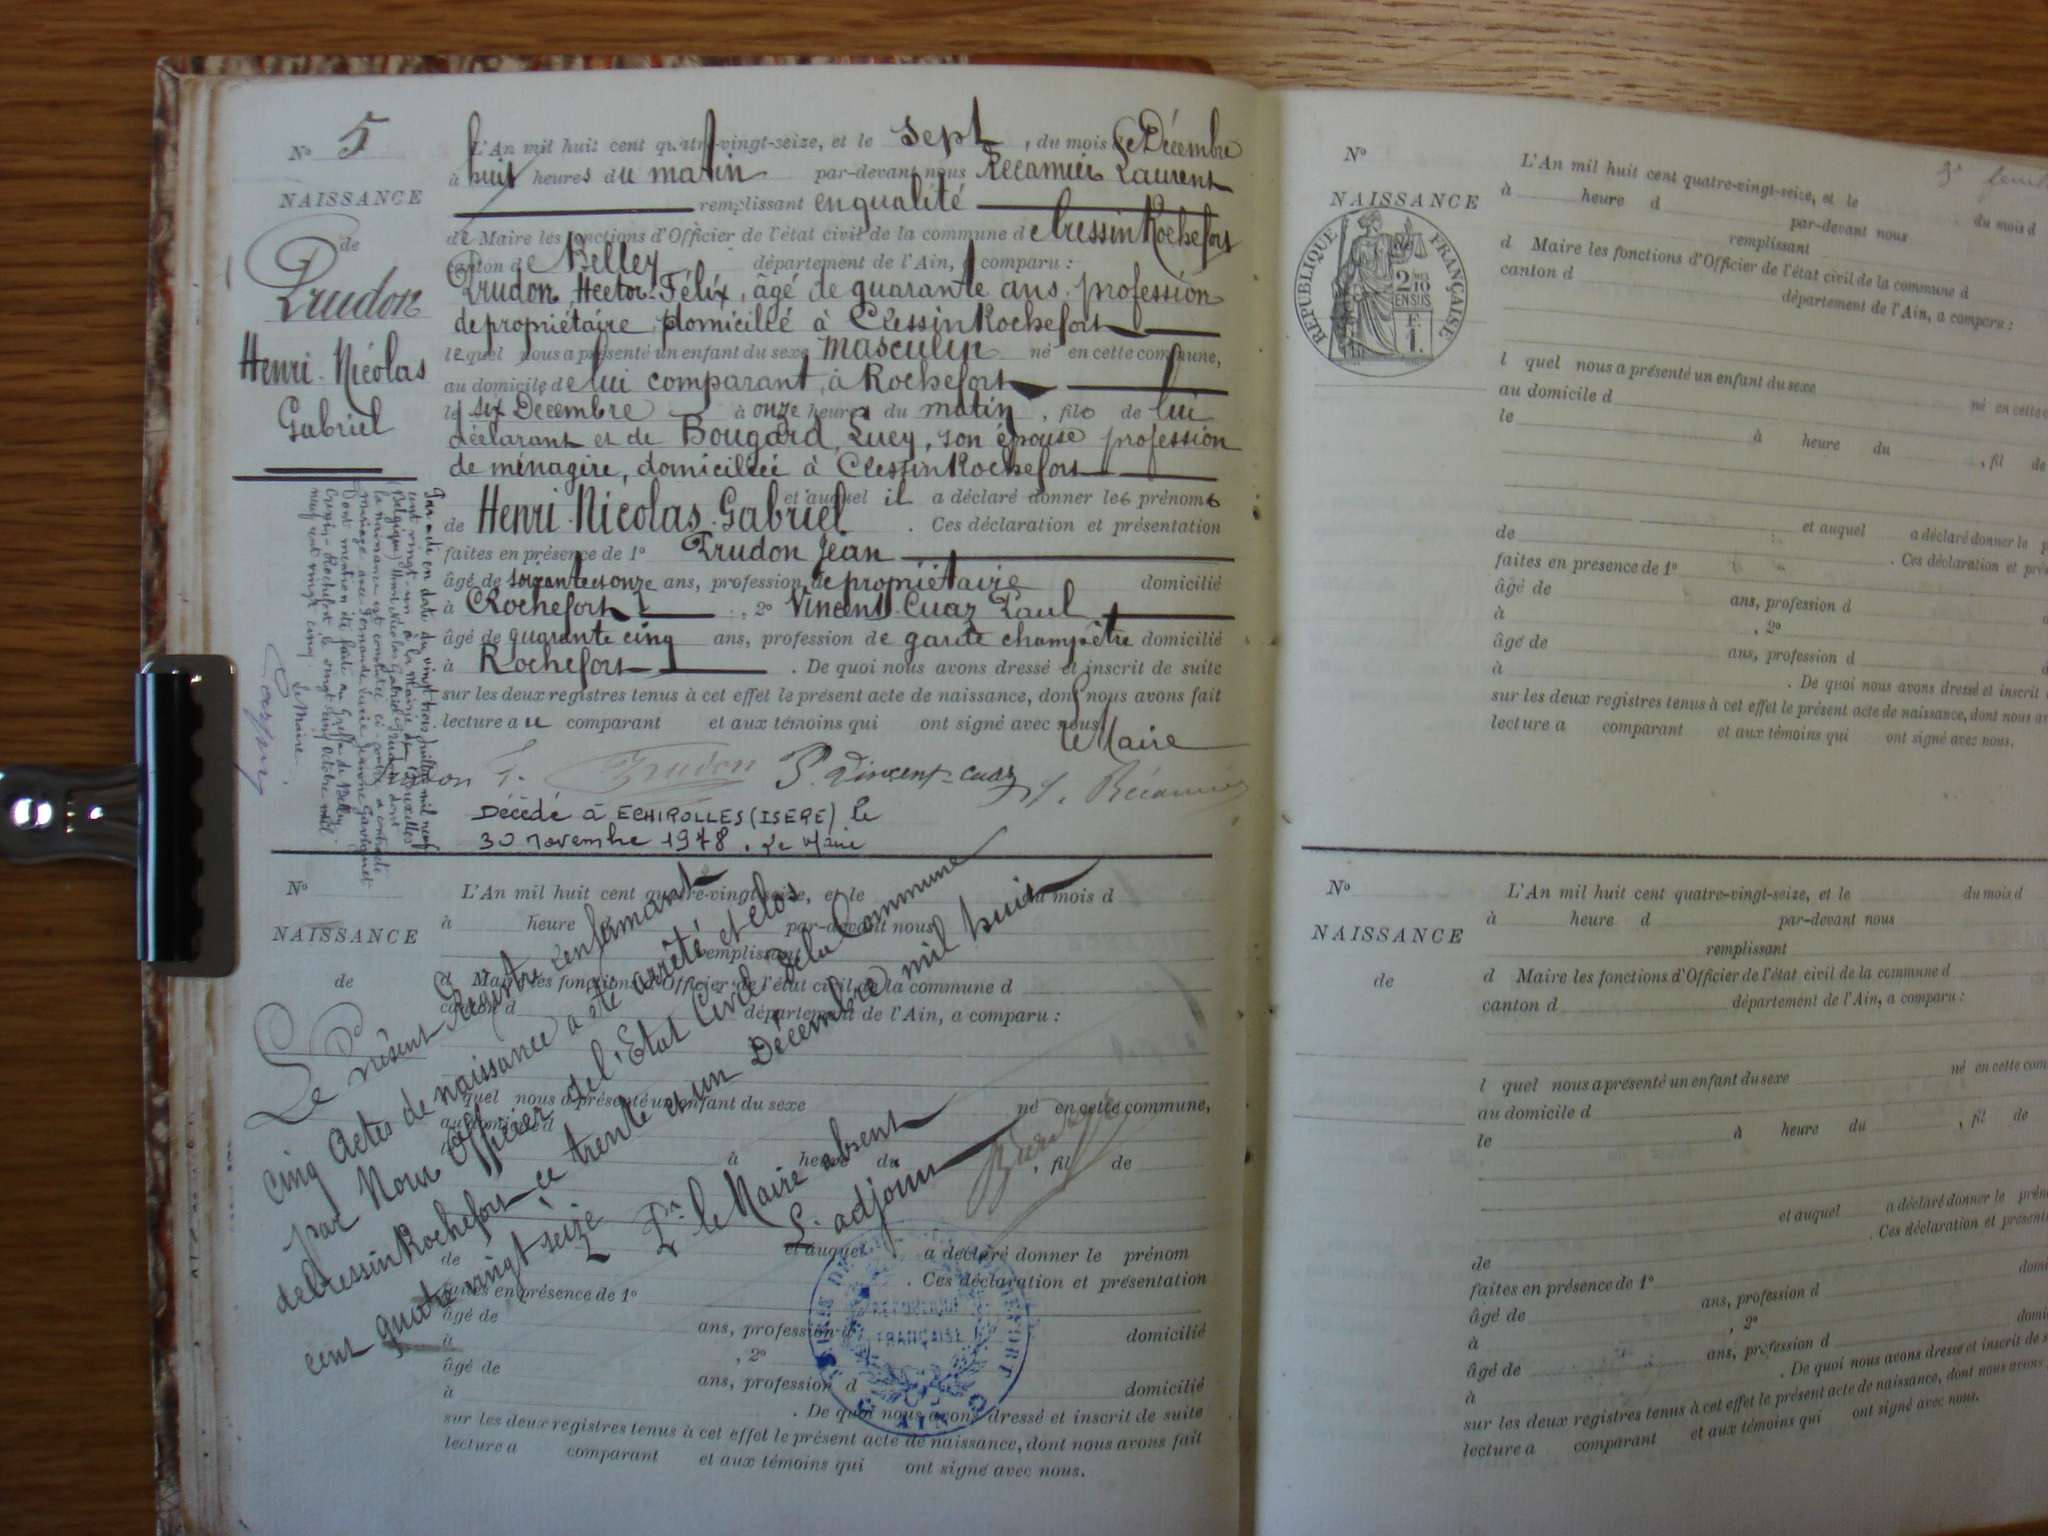 N° 5
NAISSANCE
de
Prudon
Henri-Nicolas
Gabriel
L'An mil huit cent quatre-vingt-seize, et le sept, du mois de Décembre
à huit heures du matin par-devant nous Récamier Laurent
remplissant en qualité
de Maire les fonctions d'Officier de l'état civil de la commune de Cressin Rochefort
canton de Belley département de l'Ain, a comparu :
Prudon, Hector-Félix, âgé de quarante ans, profession
de propriétaire, domicilié à Cressin Rochefort
lequel nous a présenté un enfant du sexe masculin né en cette commune,
au domicile de lui comparant, à Rochefort
le six Décembre à onze heures du matin, fils de lui
déclarant et de Bougard, Lucy, son épouse profession
de ménagère, domiciliée à Cressin Rochefort
et auquel il a déclaré donner les prénoms
de Henri-Nicolas-Gabriel. Ces déclaration et présentation
faites en présence de 1° Prudon Jean
âgé de soixante et onze ans, profession de propriétaire domicilié
à Rochefort, 2° Vincent-Cuaz Paul
âgé de quarante cinq ans, profession de garde champêtre domicilié
à Rochefort. De quoi nous avons dressé et inscrit de suite
sur les deux registres tenus à cet effet le présent acte de naissance, dont nous avons fait
lecture au comparant et aux témoins qui ont signé avec nous.
Le Maire
Prudon P. Vincent-Cuaz L. Récamier
Décédé à ECHIROLLES (ISERE) le
30 novembre 1978. Le Maire
Par acte en date du vingt trois juillet mil neuf
cent vingt-un à la Mairie de Bruxelles
(Belgique) Henri Nicolas Gabriel Prudon dont
la naissance est constatée ci-contre a contracté
mariage avec Fernande Lucie Jeanne
Dont mention été faite au Greffe de Belley
Cressin-Rochefort le vingt cinq octobre mil
neuf cent vingt cinq.
Le Maire
N°
NAISSANCE
de
L'An mil huit cent quatre-vingt-seize, et le du mois d
à heure d par-devant nous
remplissant
d Maire les fonctions d'Officier de l'état civil de la commune d
canton d département de l'Ain, a comparu :
l quel nous a présenté un enfant du sexe né en cette commune,
au domicile d
à heure du , fil de
et auquel a déclaré donner le prénom
de . Ces déclaration et présentation
faites en présence de 1°
âgé de ans, profession d domicilié
à , 2°
âgé de ans, profession d domicilié
à . De quoi nous avons dressé et inscrit de suite
sur les deux registres tenus à cet effet le présent acte de naissance, dont nous avons fait
lecture a comparant et aux témoins qui ont signé avec nous.
Le Présent Registre renfermant
cinq Actes de naissance a été arrêté et clos
par Nous Officier de l'Etat Civil de la Commune
de Cressin Rochefort ce trente et un Décembre mil huit
cent quatre vingt seize
Pr le Maire absent
L'adjoint
RÉPUBLIQUE
FRANÇAISE
AIN
N°
NAISSANCE
RÉPUBLIQUE FRANÇAISE
2/10
EN SUS
F.
1.
L'An mil huit cent quatre-vingt-seize, et le
du mois d
à heure d par-devant nous
remplissant
d Maire les fonctions d'Officier de l'état civil de la commune d
canton d département de l'Ain, a comparu :
l quel nous a présenté un enfant du sexe
au domicile d né en cette
le à heure du , fil de
et auquel a déclaré donner le
de . Ces déclaration et
faites en présence de 1°
âgé de ans, profession d
à , 2°
âgé de ans, profession d
à . De quoi nous avons dressé et inscrit
sur les deux registres tenus à cet effet le présent acte de naissance, dont nous
lecture a comparant et aux témoins qui ont signé avec nous.
N°
NAISSANCE
de
L'An mil huit cent quatre-vingt-seize, et le du mois d
à heure d par-devant nous
remplissant
d Maire les fonctions d'Officier de l'état civil de la commune d
canton d département de l'Ain, a comparu :
l quel nous a présenté un enfant du sexe né en cette com
au domicile d
le à heure du , fil de
et auquel a déclaré donner le
de . Ces déclaration et
faites en présence de 1°
âgé de ans, profession d
à , 2°
âgé de ans, profession d
à . De quoi nous avons dressé et inscrit de
sur les deux registres tenus à cet effet le présent acte de naissance, dont nous avons
lecture a comparant et aux témoins qui ont signé avec nous.